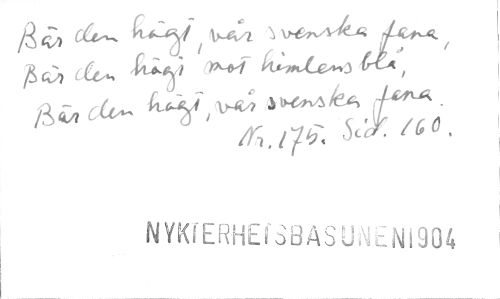 Bär den högt, vår svenska fana,
Bär den högt mot himlens blå,
Bär den högt, vår svenska fana.
Nr. 175. Sid. 160.
NYKTERHETSBASUNEN1904